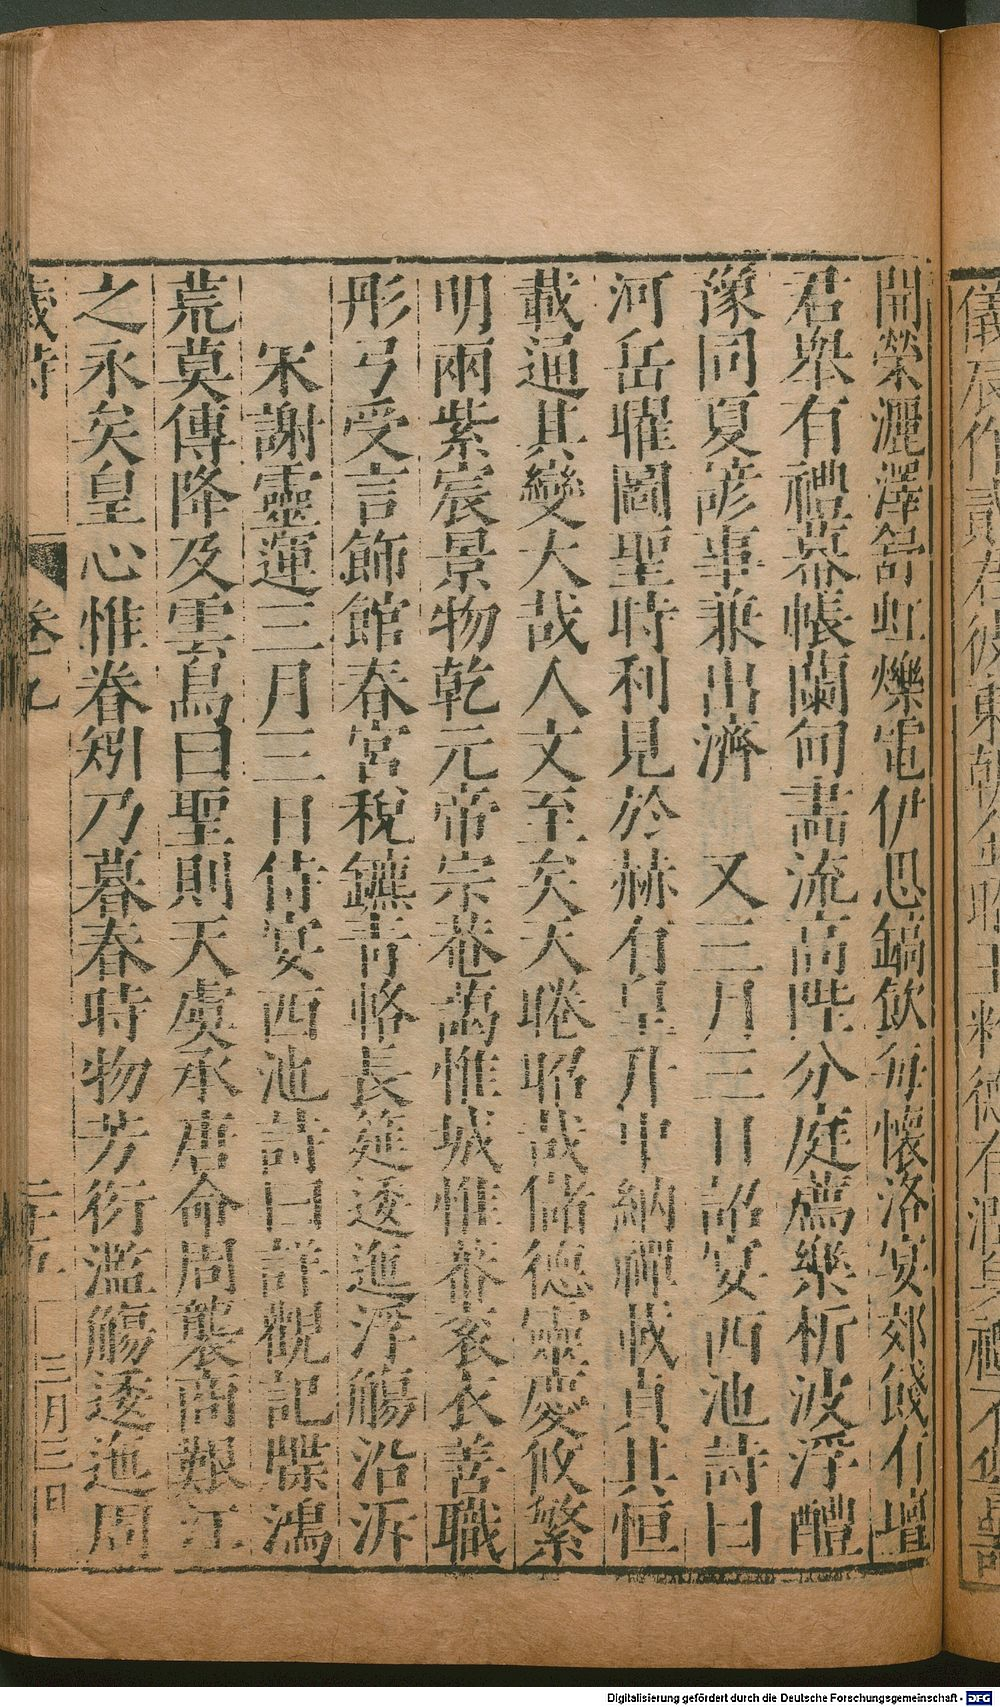 開榮灑澤舒虹爍電伊思鎬飲每懷洛宴郊餞有壇
君舉有禮幕帷蘭甸畫流高陛分庭薦樂析波浮醴
豫同夏諺事兼出濟　又三月三日詔宴西池詩曰
河岳曜圖聖時利見於赫有皇升中納禪載貞其恒
載通其變大哉人文至矣天睠昭哉儲德靈慶攸繁
明兩紫宸景物乾元帝宗菴藹惟城惟蕃袞衣善職
彤弓受言飾館春宮稅鑣青輅長筵逶迤浮觴沿泝
宋謝靈運三月三日侍宴西池詩曰詳觀記牒鴻
荒莫傳降及雲鳥曰聖則天虞承唐命周襲商艱江
之永矣皇心惟眷矧乃暮春時物芳衍濫觴逶迤周
歲時　卷九　三月三日
Digitalisierung gefördert durch die Deutsche Forschungsgemeinschaft - DFG